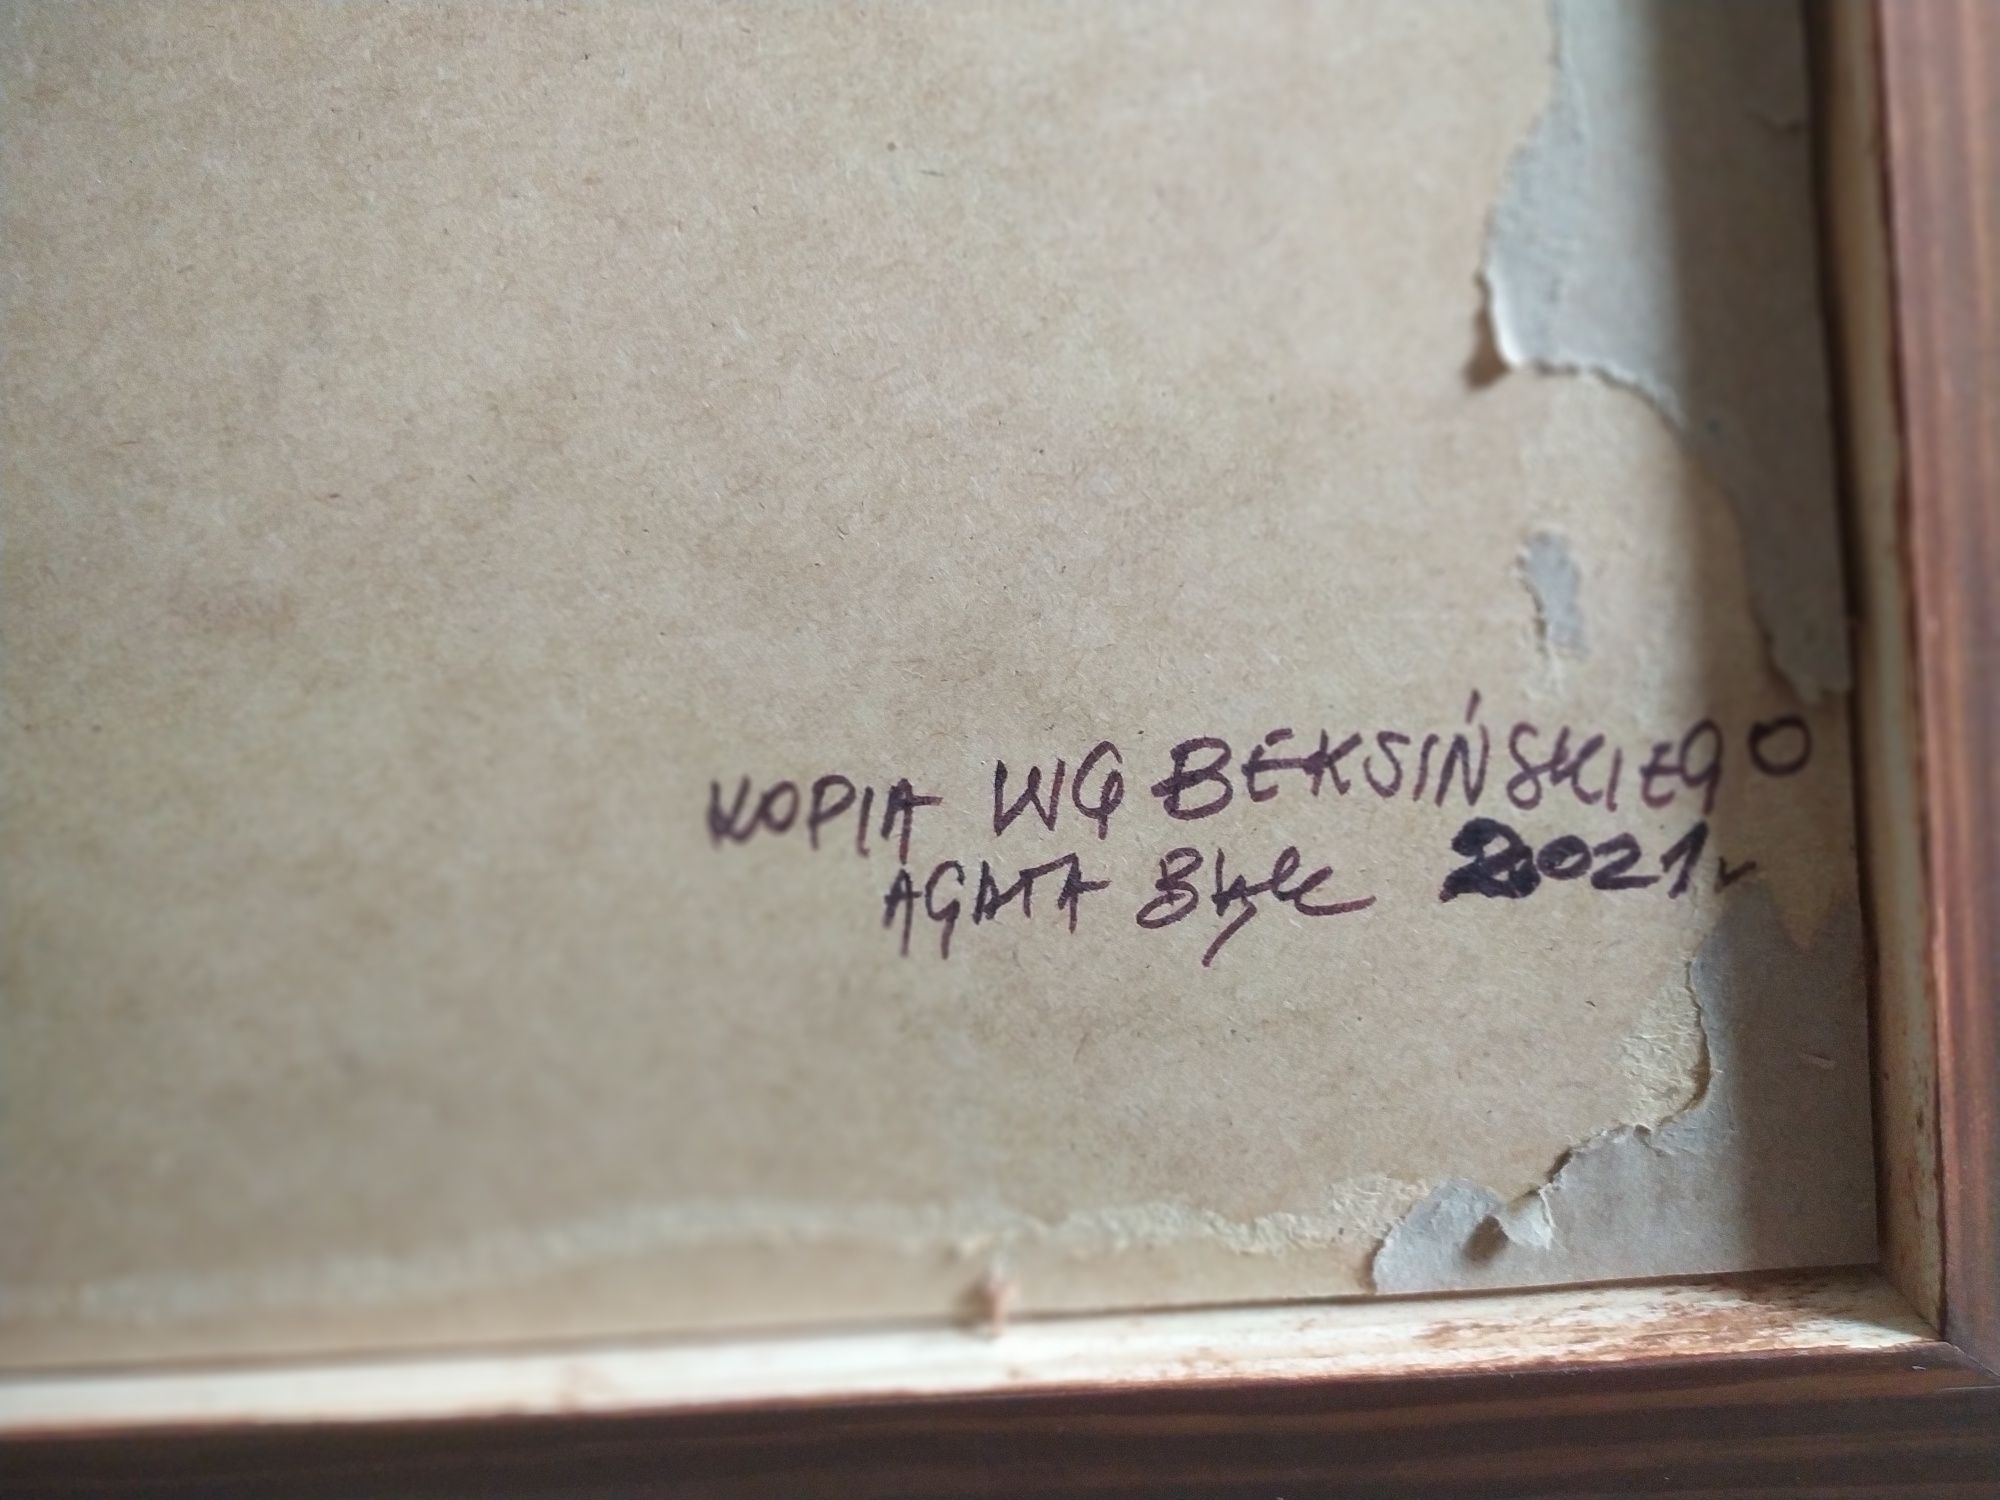 KOPIA WG BEKSIŃSKIEGO
AGATA Bąk 2021r